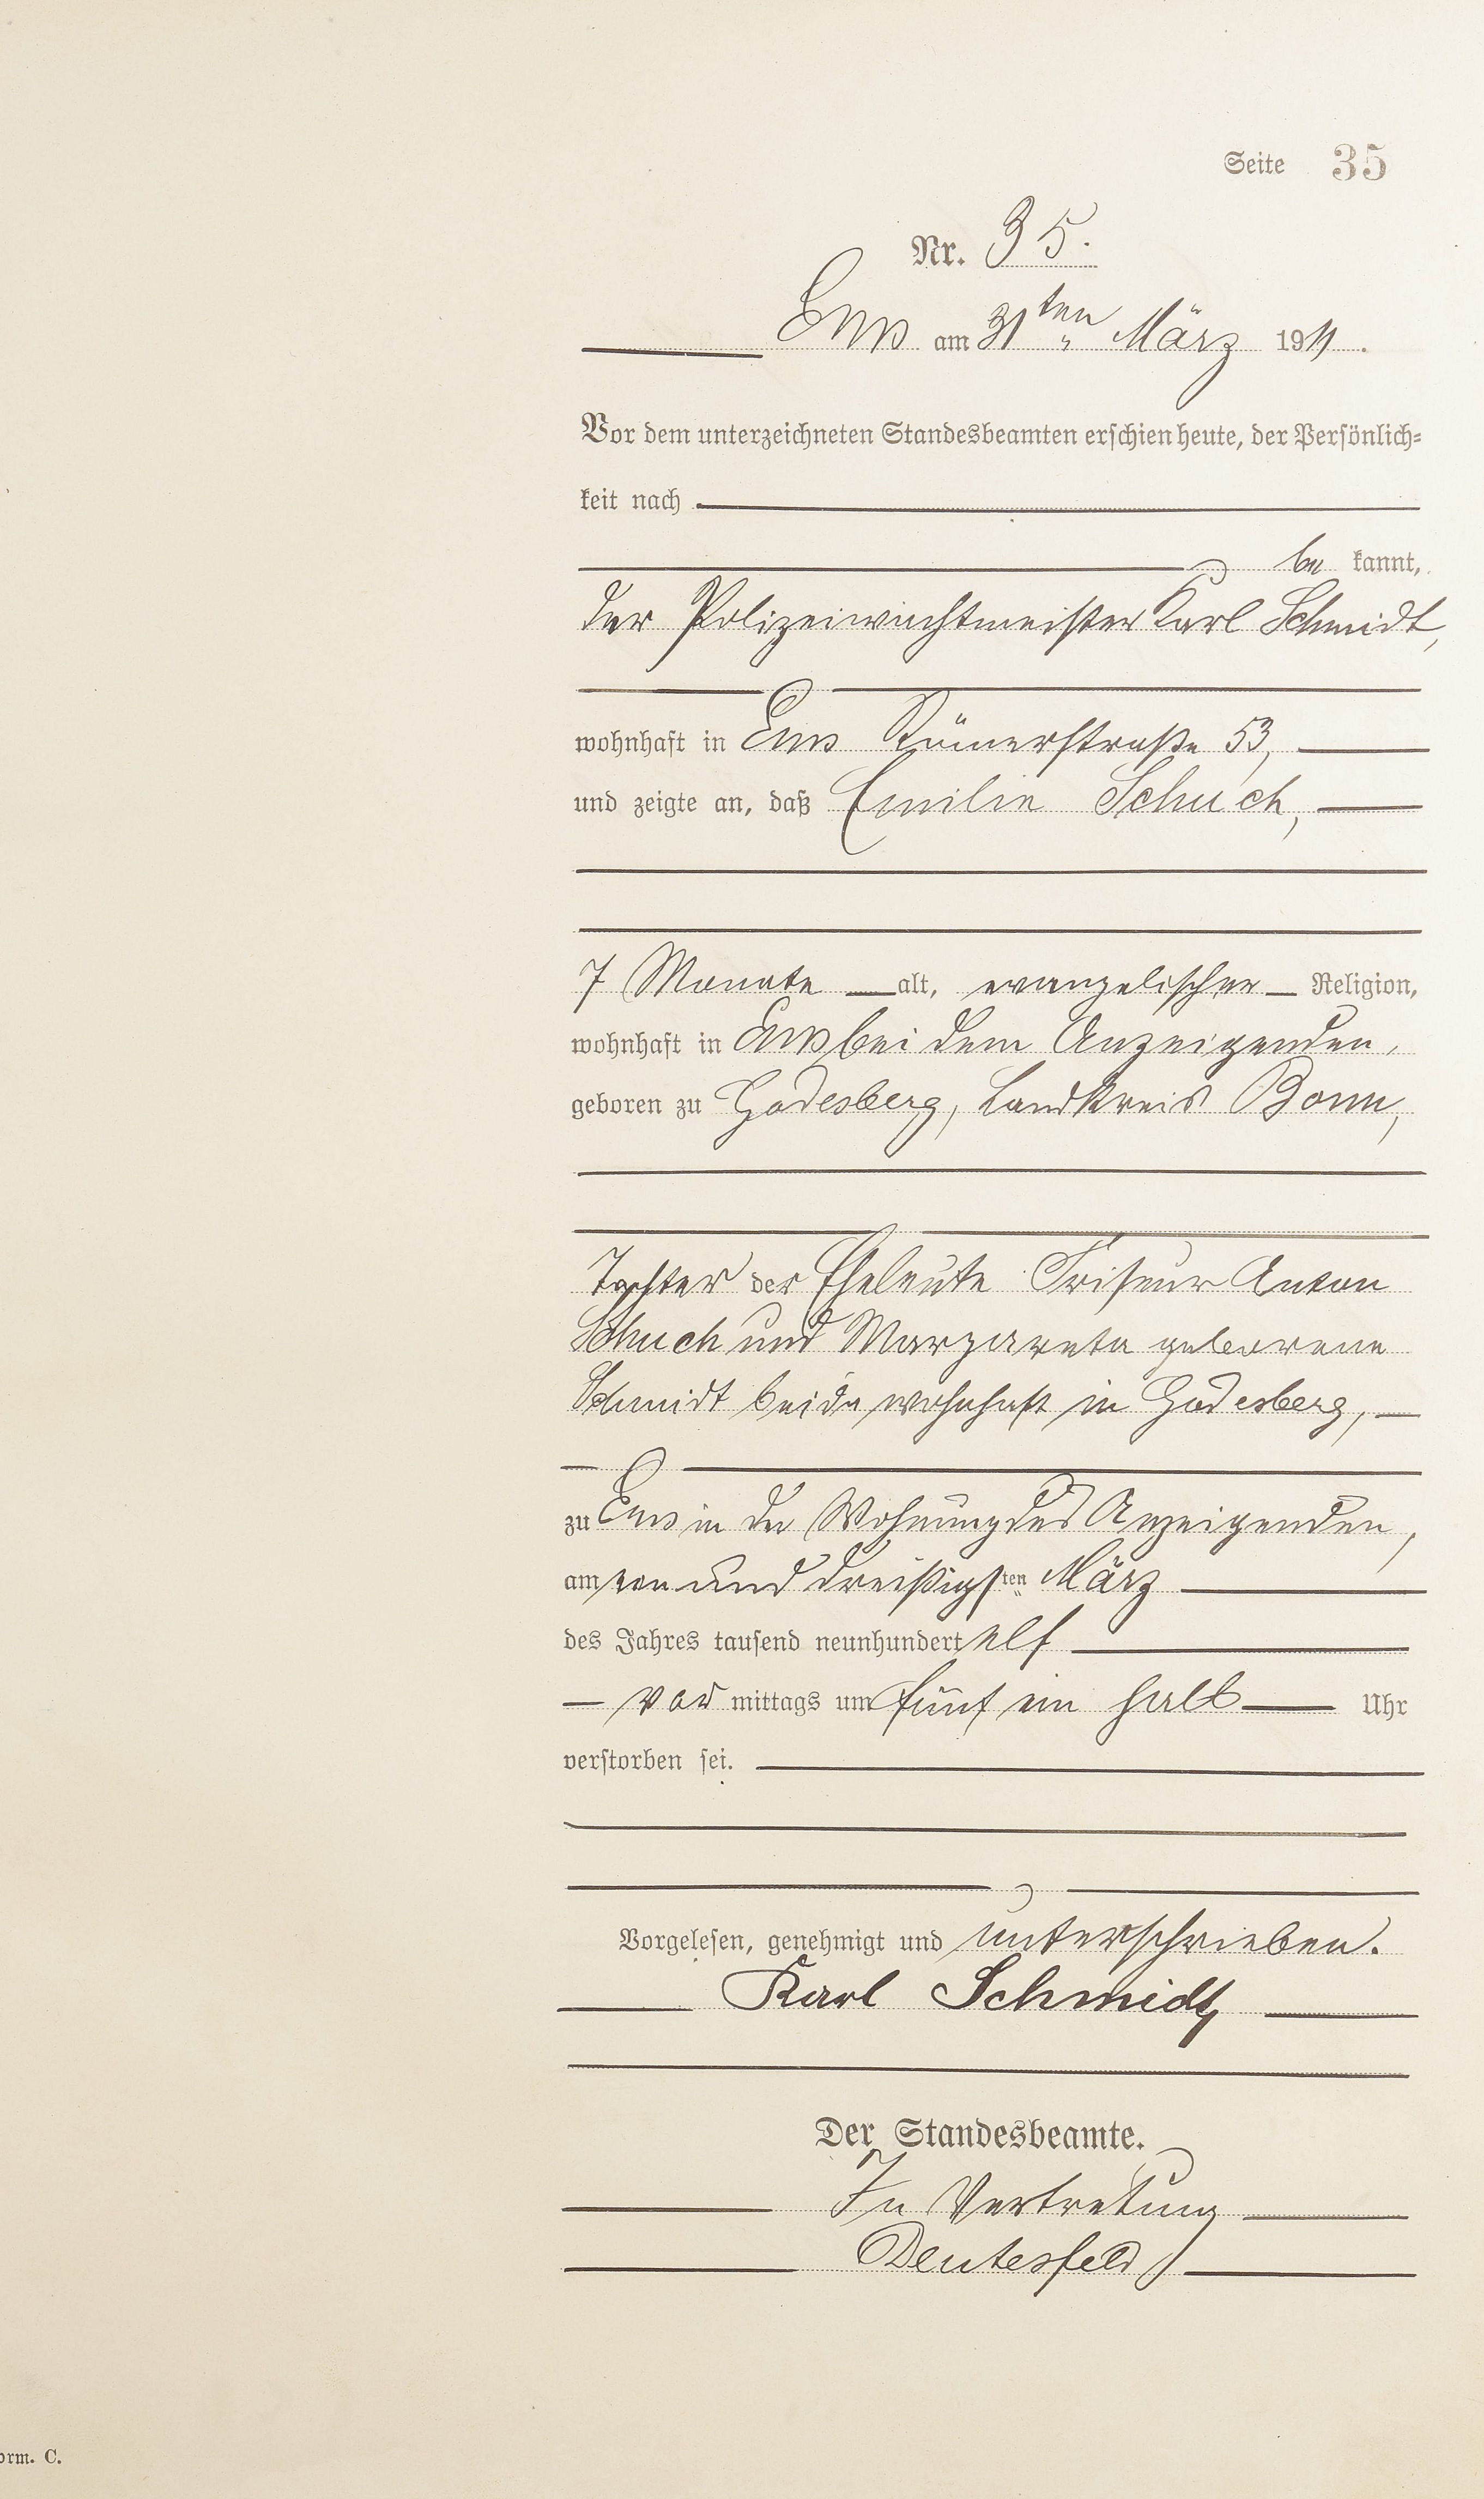 Seite 35
Nr. 35.
Ems am 31ten März 1911.
Vor dem unterzeichneten Standesbeamten erschien heute, der Persönlich-
keit nach
be kannt,
der Polizeiwachtmeister Karl Schmidt,
wohnhaft in Ems Römerstraße 53,
und zeigte an, daß Emilie Schuch,
7 Monate alt, evangelischer Religion,
wohnhaft in Ems bei dem Anzeigenden,
geboren zu Godesberg, Landkreis Bonn,
Tochter der Eheleute Friseur Anton
Schuch und Margareta geborene
Schmidt beide wohnhaft in Godesberg,
zu Ems in der Wohnung des Anzeigenden,
am ein und dreißigsten März
des Jahres tausend neunhundert elf
vor mittags um fünf ein halb Uhr
verstorben sei.
Vorgelesen, genehmigt und unterschrieben.
Karl Schmidt
Der Standesbeamte.
In Vertretung
Deutesfeld
orm. C.